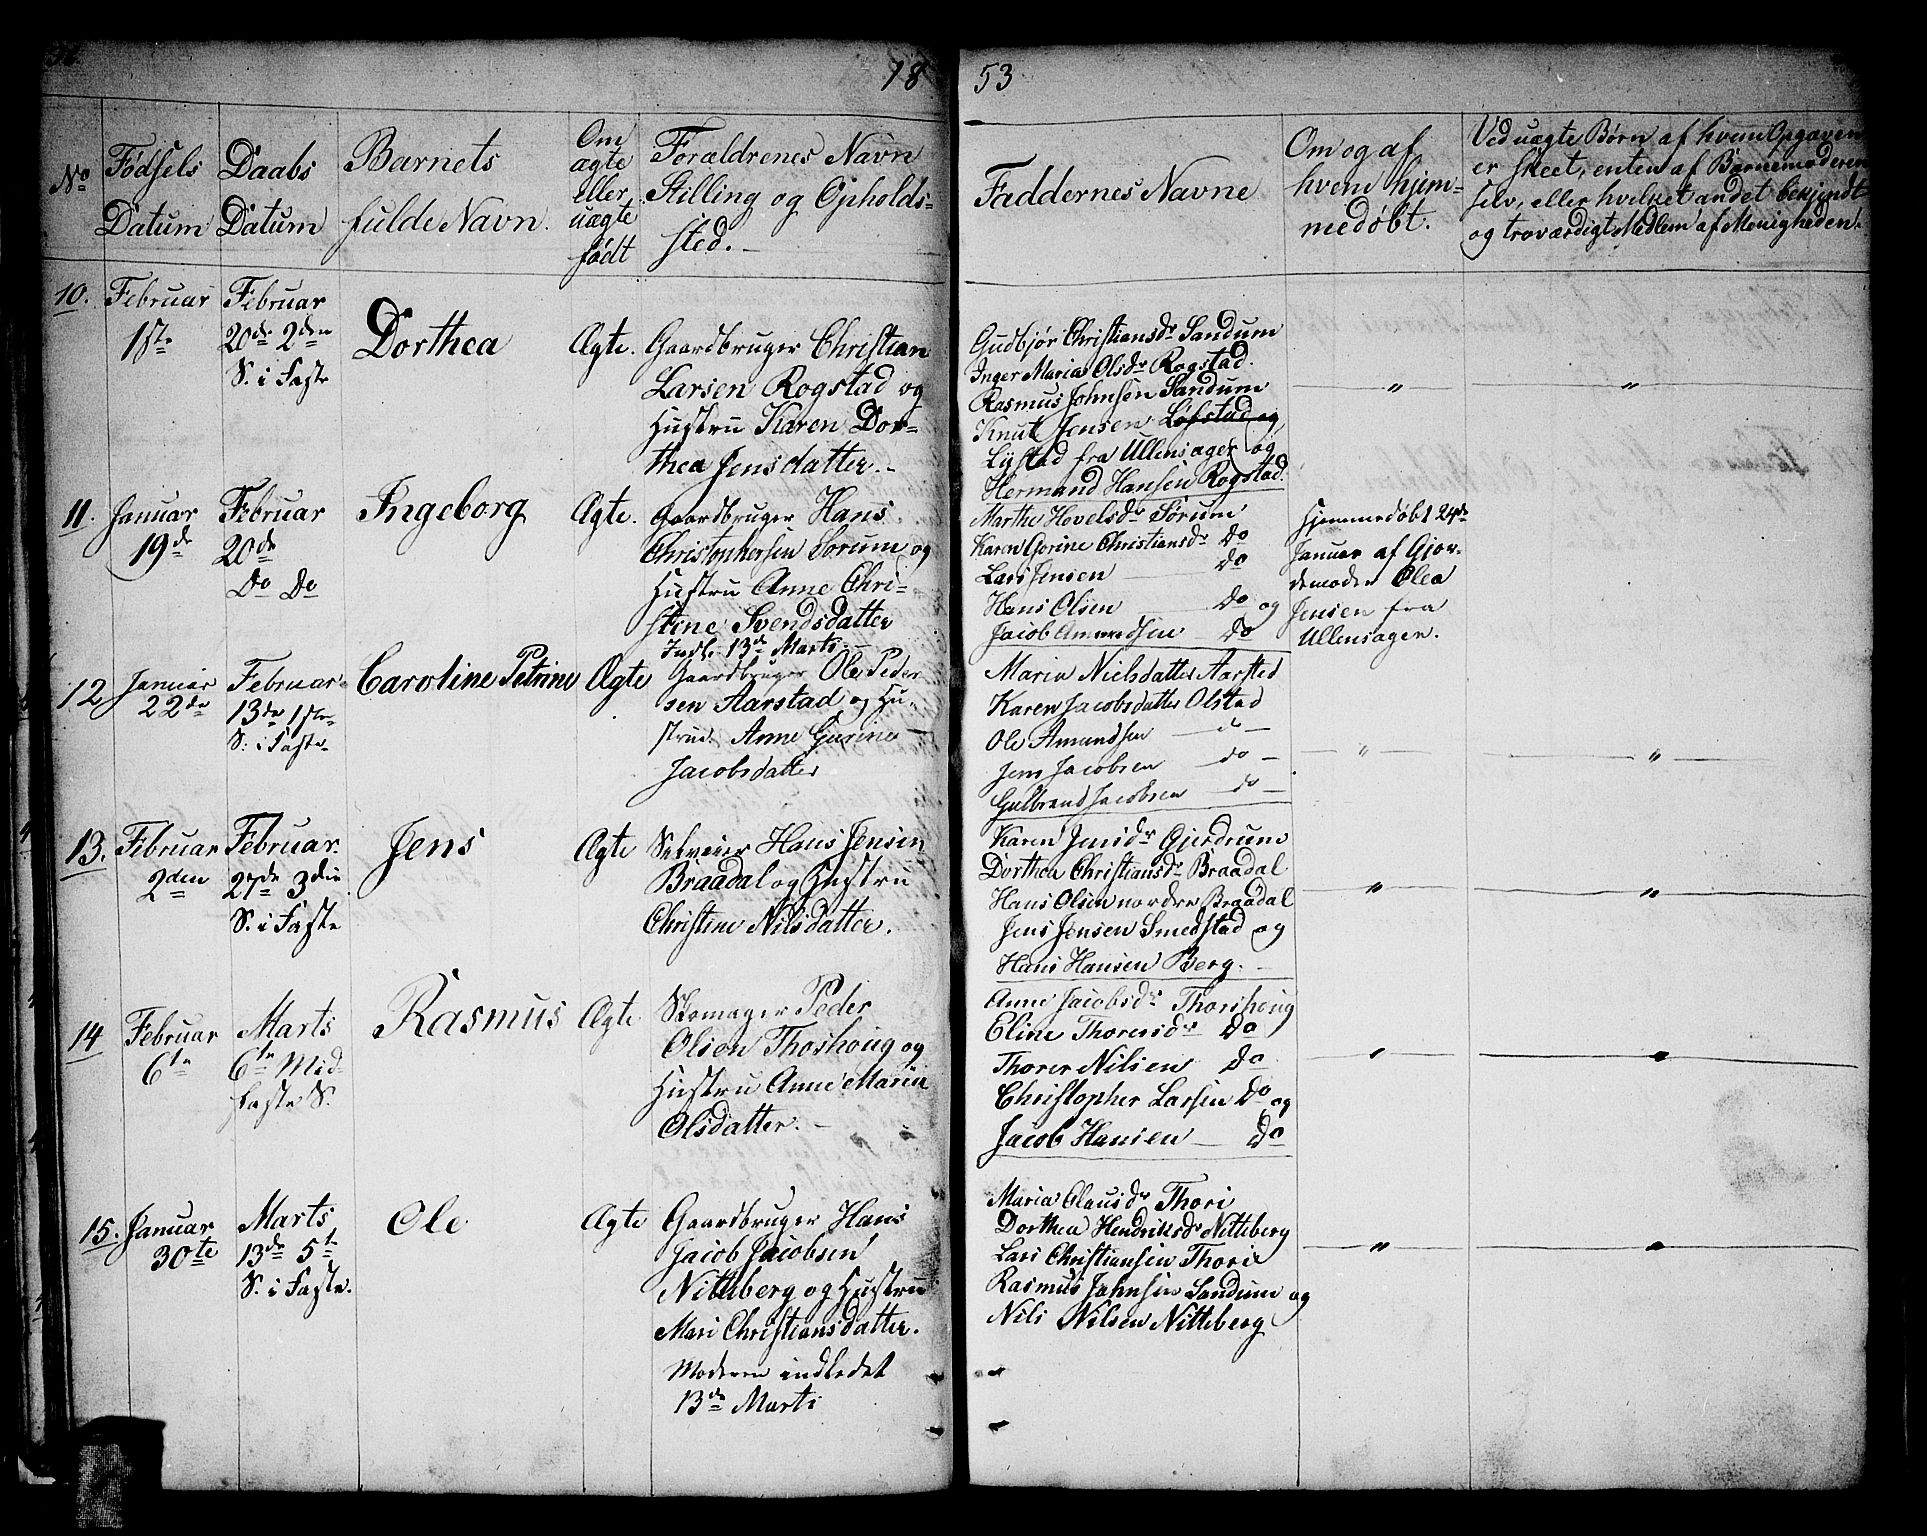 18 53
No
Fødsels Datum
Daabs Datum
Barnets fulde Navn.
Om ægte eller uægte født
Forældrenes Navn Stilling og Opholdssted.
Faddernes Navne
Om og af hvem hjemmedøbt.
Ved uægte Børn af hvem Opgaven er skeet, enten af Barnemoderen selv, eller hvilket andet bekjendt og troværdigt Medlem af Menigheden.
10.
Februar
1ste
Februar
20de 2den
S. i Faste
Dorthea
Ægte.
Gaardbruger Christian
Larsen Rogstad og
Hustru Karen Dor-
thea Jensdatter.
Gudbjør Christiansdr Sandum
Inger Maria Olsdr Rogstad.
Rasmus Johnsen Sandum
Knut Jensen Løfstad og
Lystad fra Ullensager og
Hermand Hansen Rogstad.
"
"
11.
Januar
19de
Februar
20de
Do Do
Ingeborg
Ægte.
Gaardbruger Hans
Christophersen Sørum og
Hustru Anne Chri-
stine Svendsdatter
Indl. 13de Marts
Marthe Hovelsdr Sørum
Karen Gorine Christiansdr Do
Lars Jensen Do
Hans Olsen Do og
Jacob Amundsen Do
Hjemmedøbt 24de
Januar af Gjor-
demoder Olea
Jensen fra
Ullensager.
12
Januar
22de
Februar
13de 1ste
S. i Faste
Caroline Petrine
Ægte
Gaardbruger Ole Peder
sen Aarstad og Hu-
strue Anne Gurine
Jacobsdatter
Maria Nielsdatter Aarsted
Karen Jacobsdatter Olstad
Ole Amundsen do
Jens Jacobsen do
Gulbrand Jacobsen do
"
"
13.
Februar
2den
Februar
27de 3die
S. i Faste
Jens
Ægte
Selveier Hans Jensen
Braadal og Hustru
Christine Nilsdatter.
Karen Jensdr Gjerdrum
Dorthea Christiansdr Braadal
Hans Olsen nordre Braadal
Jens Jensen Smedstad og
Hans Hansen Berg.
"
"
14
Februar
6te
Marts
6te Mid-
faste S.
Rasmus
Ægte
Skomager Peder
Olsen Thoshoug og
Hustru Anne Maria
Olsdatter.
Anne Jacobsdr Thorshoug
Eline Thoresdr Do
Thorer Nilsen Do
Christopher Larsen Do og
Jacob Hansen Do
"
"
15.
Januar
30te
Marts
13de 5te
S. i Faste.
Ole
Ægte
Gaardbruger Hans
Jacob Jacobsen
Nitteberg og Hustru
Mari Christiansdatter.
Moderen indledet
13de Marts
Maria Olausdr Thori
Dorthea Hendriksdr Nitteberg
Lars Christiansen Thori
Rasmus Johnsen Sandum og
Nils Nilsen Nitteberg
"
"